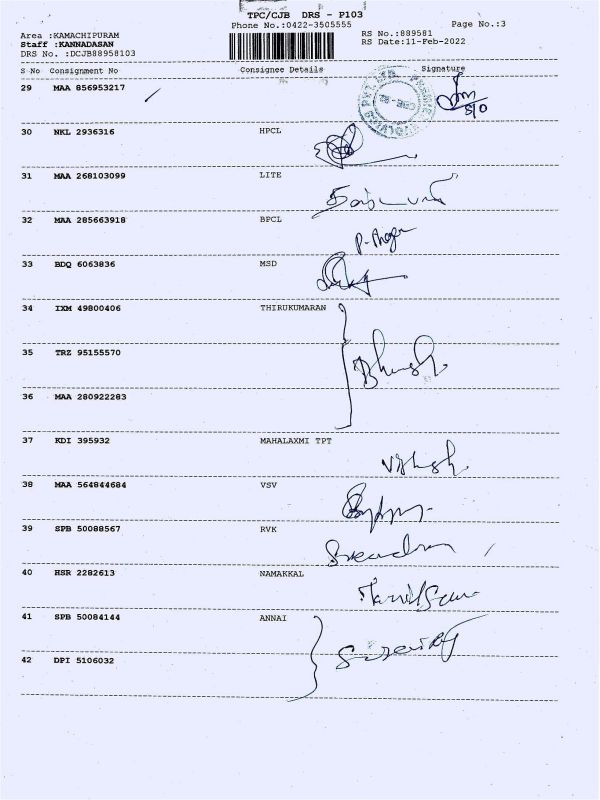 TPC/CJB DRS - P103
Phone No.:0422-3505555 Page No.:3
Area :KAMACHIPURAM RS No.:889581
Staff :KANNADASAN RS Date:11-Feb-2022
DRS No. :DCJB88958103
S No Consignment No Consignee Details Signature
29 MAA 856953217
30 NKL 2936316 HPCL
31 MAA 268103099 LITE
32 MAA 285663918 BPCL
33 BDQ 6063836 MSD
34 IXM 49800406 THIRUKUMARAN
35 TRZ 95155570
36 MAA 280922283
37 KDI 395932 MAHALAXMI TPT
38 MAA 564844684 VSV
39 SPB 50088567 RVK
40 HSR 2282613 NAMAKKAL
41 SPB 50084144 ANNAI
42 DPI 5106032